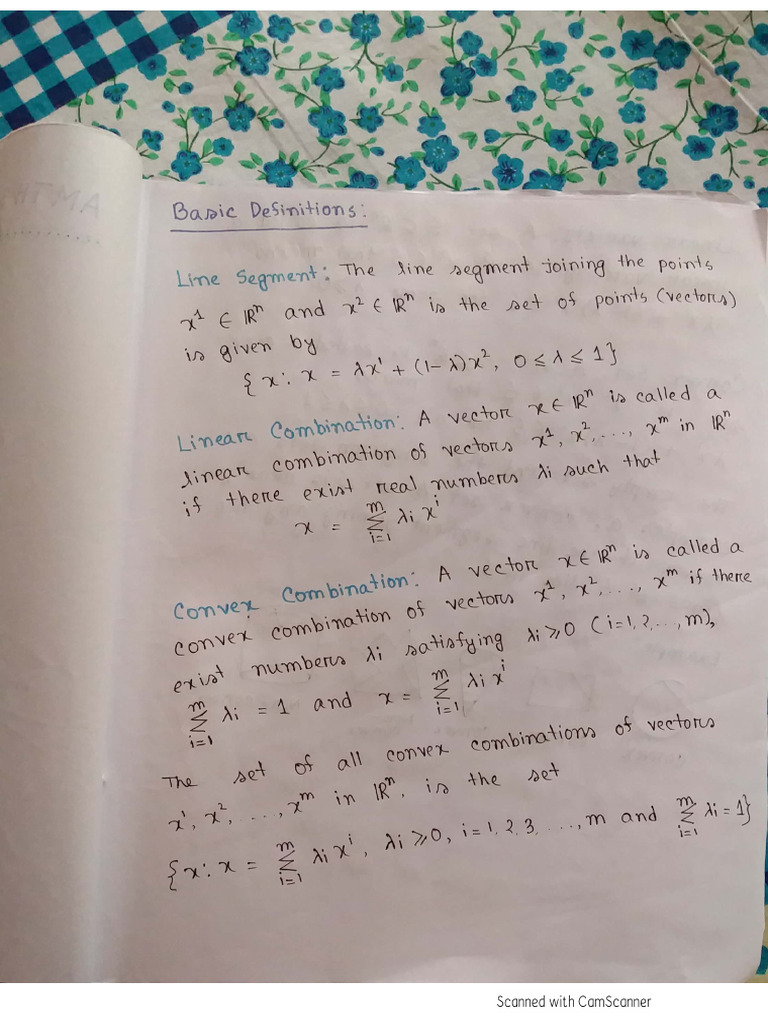 Basic Definitions:
Line Segment: The line segment joining the points
x¹ ∈ ℝⁿ and x² ∈ ℝⁿ is the set of points (vectors)
is given by
{x: x = λx¹ + (1-λ)x², 0 ≤ λ ≤ 1}
Linear Combination: A vector x ∈ ℝⁿ is called a
linear combination of vectors x¹, x², ..., xᵐ in ℝⁿ
if there exist real numbers λi such that
x = ∑_{i=1}^{m} λi xⁱ
Convex Combination: A vector x ∈ ℝⁿ is called a
convex combination of vectors x¹, x², ..., xᵐ if there
exist numbers λi satisfying λi ⩾ 0 (i=1, 2, ..., m),
∑_{i=1}^{m} λi = 1 and x = ∑_{i=1}^{m} λi xⁱ
The set of all convex combinations of vectors
x¹, x², ..., xᵐ in ℝⁿ. is the set
{x: x = ∑_{i=1}^{m} λi xⁱ, λi ⩾ 0, i = 1, 2, 3, ..., m and ∑_{i=1}^{m} λi = 1}
Scanned with CamScanner